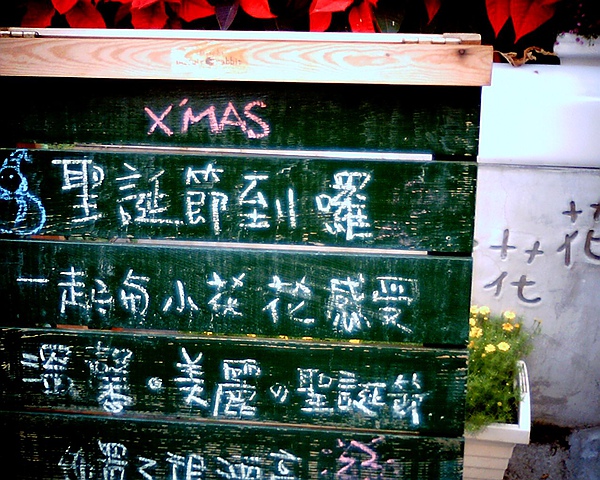 X'MAS
聖誕節到囉
一起向小花花感受
溫馨。美麗の聖誕節
花
花